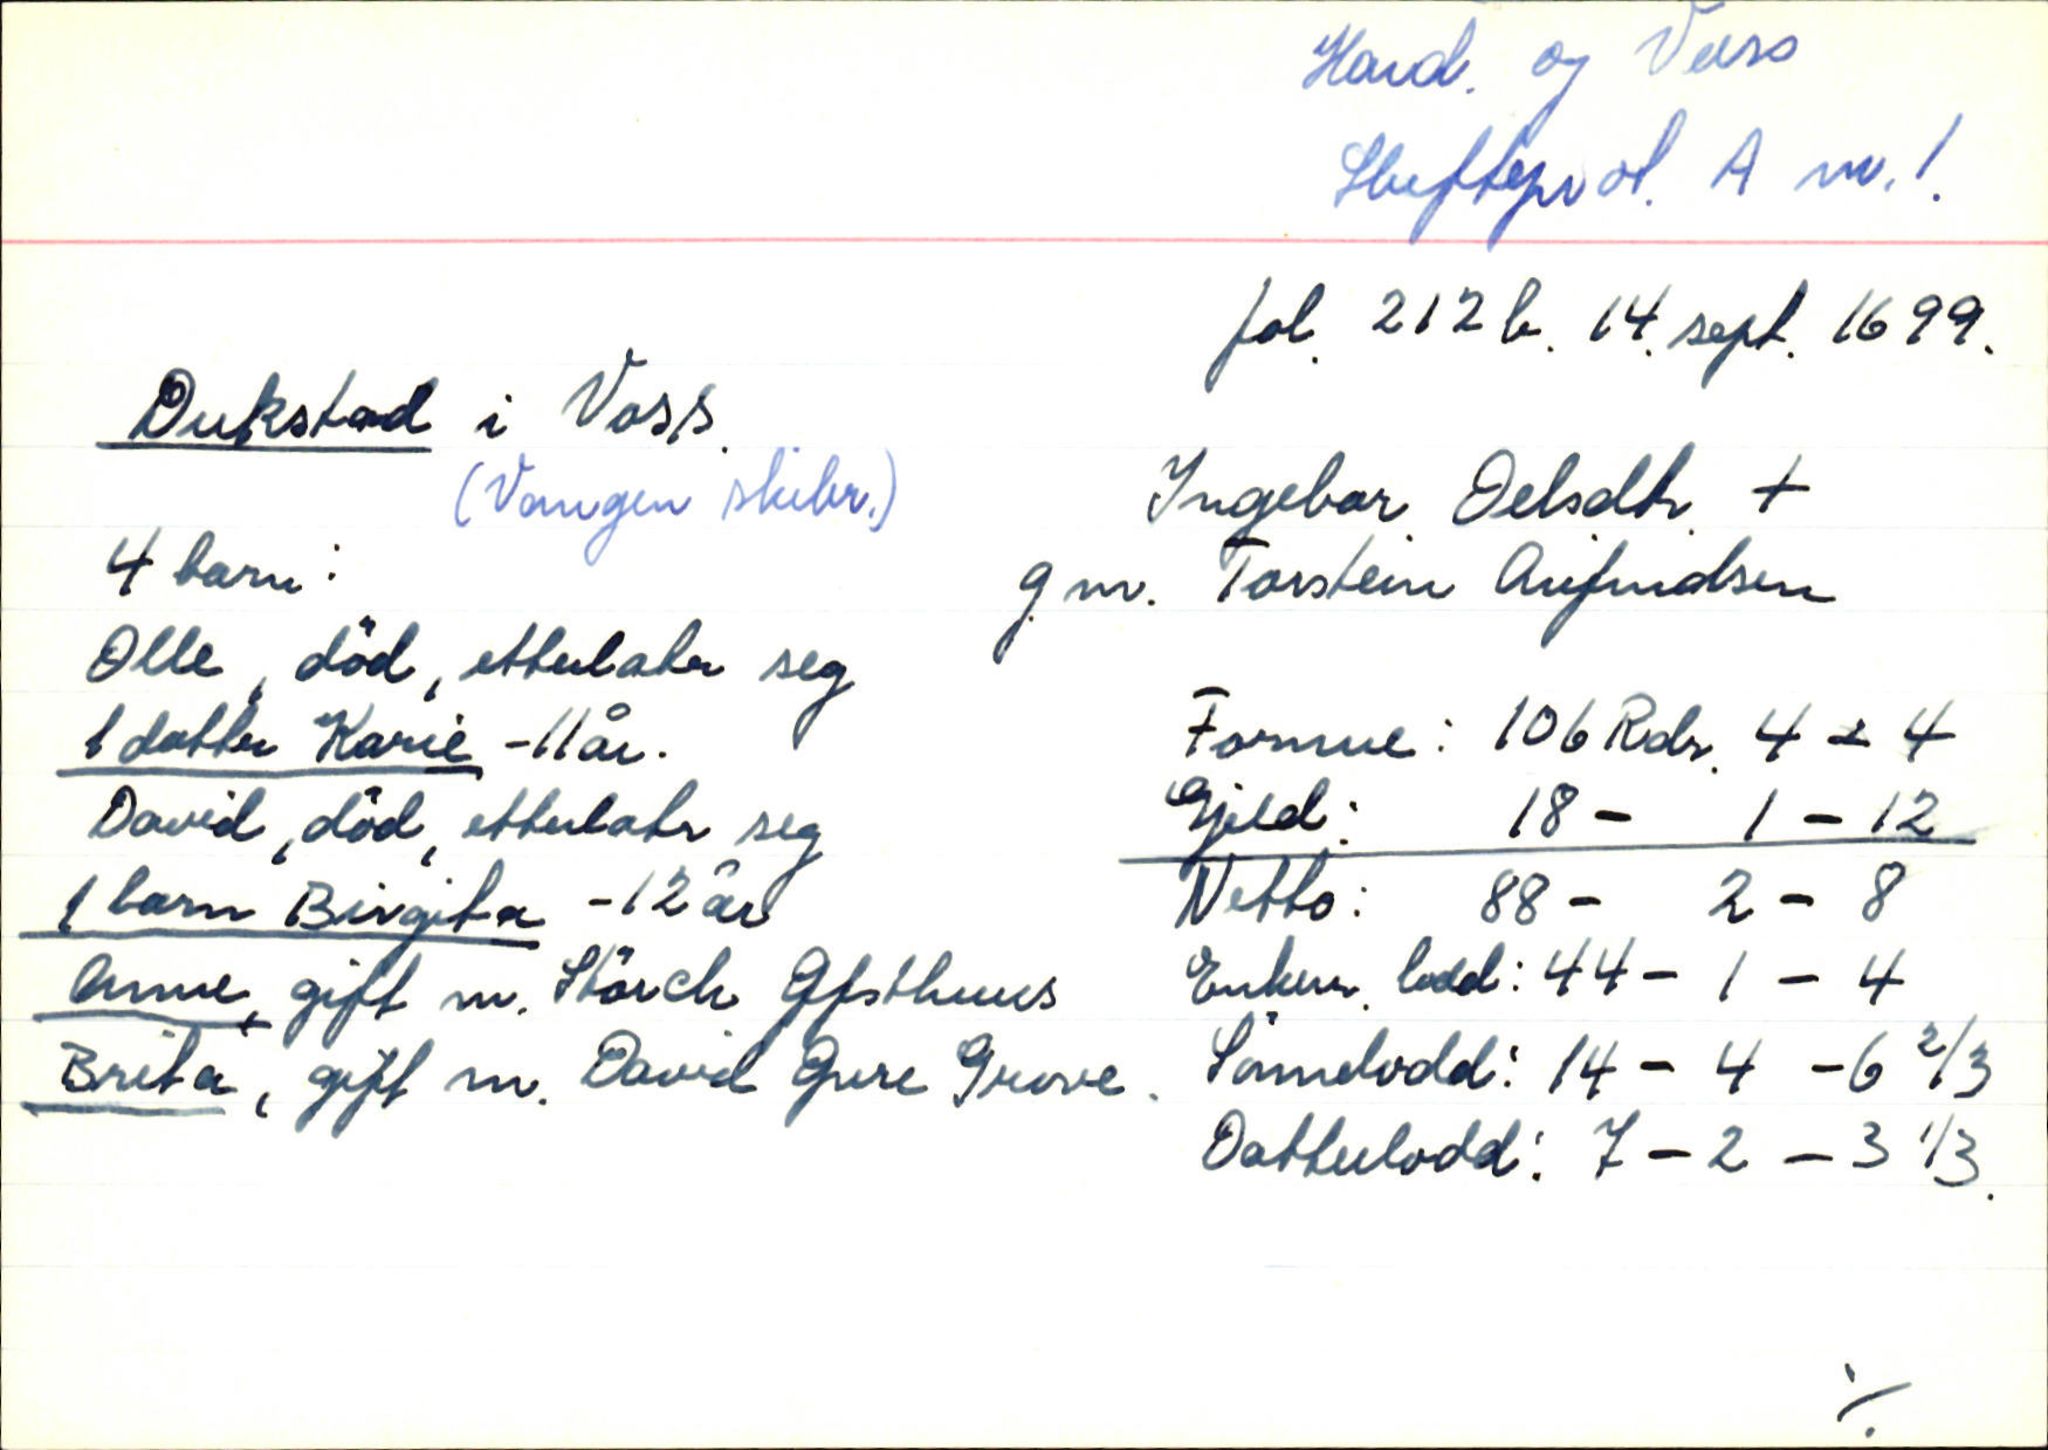 Hard. og Voss
Skifteprot. A nr. 1.
fol. 212 b. 14. sept. 1699.
Dukstad i Voss.
(Vangen skibr.)
Ingebor Oelsdtr. +
g m. Torstein Anfindsen
4 barn:
Olle, död, etterlater seg
1 datter Karie - 11 år.
David, död, etterlater seg
1 barn Birgita - 12 år
Anne, gift m. Störch Gjsthuus
Brita, gift m. David Giere Grove.
Formue: 106 Rdr. 4 - 4
Gjeld: 18 - 1 - 12
Netto: 88 - 2 - 8
Enkem. lodd: 44 - 1 - 4
Sönnelodd: 14 - 4 - 6 2/3
Datterlodd: 7 - 2 - 3 1/3.
·/.